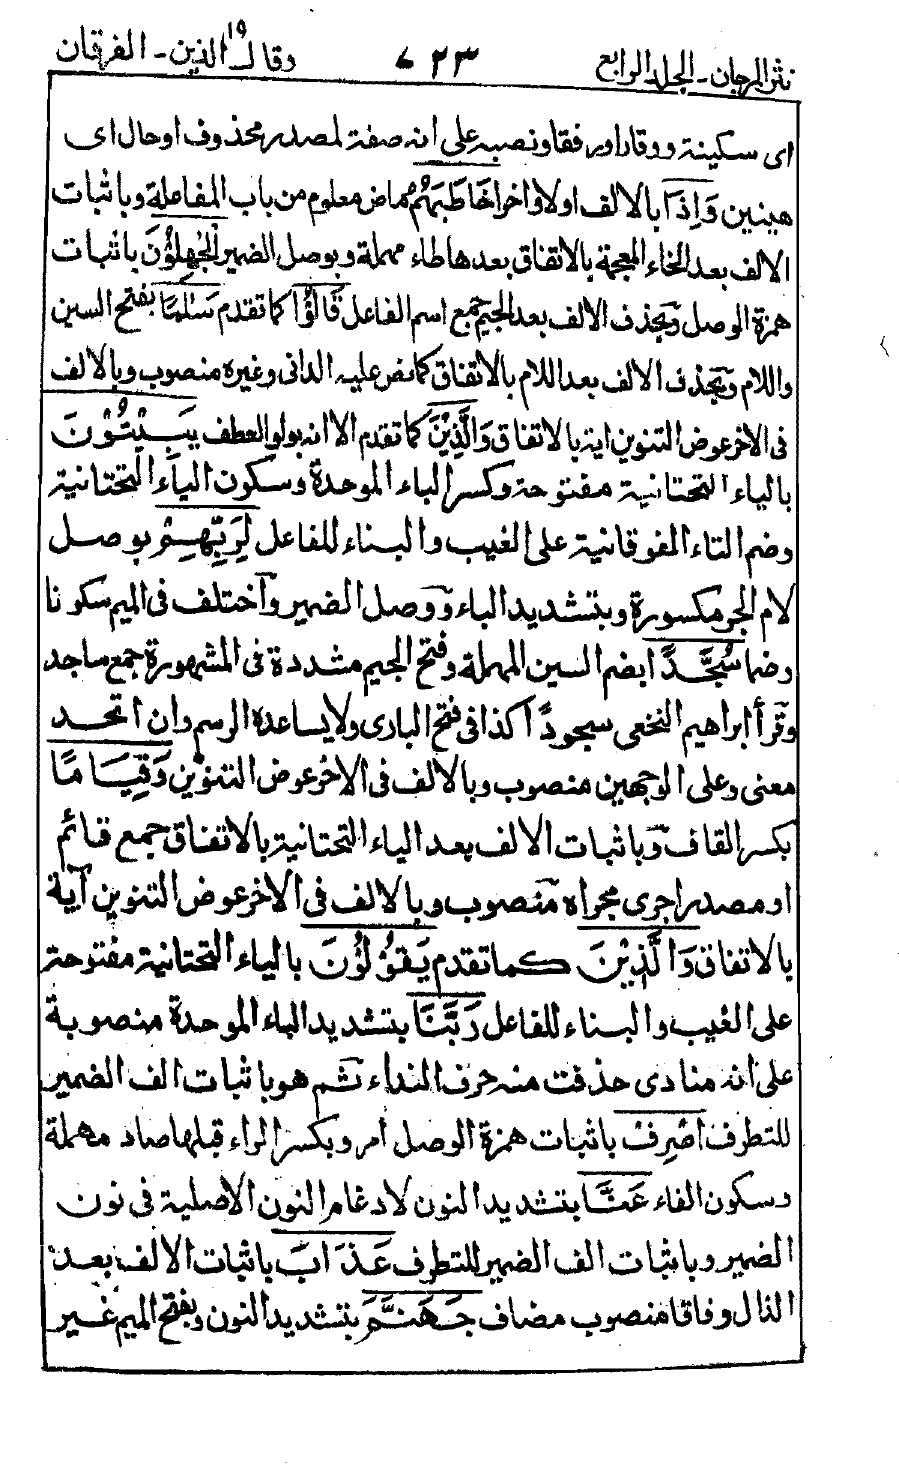 نثر المرجان - الجلد الرابع ٧٢٣ وقال الذين ١٩ - الفرقان
اى سكينة ووقارا ورفقا ونصبه على انه صفة لمصدر محذوف اوحال اى
هينين وَاِذَا بالالف اولا واخرا خَاطَبَهُمُ ماض معلوم من باب المفاعلة وباثبات
الالف بعد الخاء المعجمة بالاتفاق بعدها طاء مهملة وبوصل الضمير الْجٰهِلُوْنَ باثبات
همزة الوصل وبحذف الالف بعد الجيم جمع اسم الفاعل قَالُوْا كما تقدم سَلٰمًا بفتح السين
واللام وبحذف الالف بعد اللام بالاتفاق كما نص عليه الدانى وغيره منصوب وبالالف
فى الاخر عوض التنوين اية بالاتفاق وَالَّذِيْنَ كما تقدم الا انه بواو العطف يَبِيْتُوْنَ
بالياء التحتانية مفتوحة وكسر الباء الموحدة وسكون الياء التحتانية
وضم التاء الفوقانية على الغيب والبناء للفاعل لِرَبِّهِمْ بوصل
لام الجر مكسورة وبتشديد الباء ووصل الضمير واختلف فى الميم سكونا
وضما سُجَّدًا بضم السين المهملة وفتح الجيم مشددة فى المشهورة جمع ساجد
وقرأ ابراهيم النخعى سجودًا كذا فى فتح البارى ولا يساعده الرسم وان اتحد
معنى وعلى الوجهين منصوب وبالالف فى الاخر عوض التنوين وَقِيَامًا
بكسر القاف وباثبات الالف بعد الياء التحتانية بالاتفاق جمع قائم
او مصدر اجرى مجراه منصوب وبالالف فى الاخر عوض التنوين آية
بالاتفاق وَالَّذِيْنَ كما تقدم يَقُوْلُوْنَ بالياء التحتانية مفتوحة
على الغيب والبناء للفاعل رَبَّنَا بتشديد الباء الموحدة منصوبة
على انه منادى حذفت منه حرف النداء ثم هو باثبات الف الضمير
للتطرف اصْرِفْ باثبات همزة الوصل امر وبكسر الراء قبلها صاد مهملة
وسكون الفاء عَنَّا بتشديد النون لادغام النون الاصلية فى نون
الضمير وباثبات الف الضمير للتطرف عَذَابَ باثبات الالف بعد
الذال وفاقا منصوب مضاف جَهَنَّمَ بتشديد النون وبفتح الميم غير